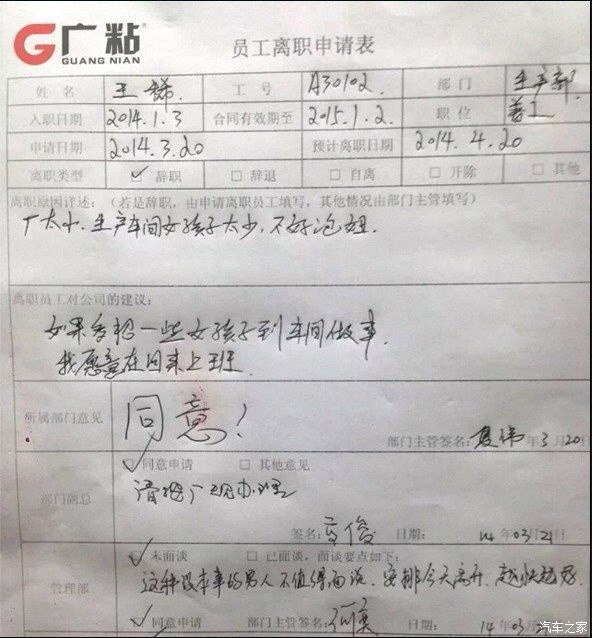 广粘
GUANG NIAN
员工离职申请表
姓名 王 工号 A30102 部门 生产部
入职日期 2014.1.3 合同有效期至 2015.1.2. 职位 普工
申请日期 2014.3.20 预计离职日期 2014.4.20
离职类型 ✓ 辞职 □ 辞退 □ 自离 □ 开除 □ 其他
离职原因详述:(若是辞职,由申请离职员工填写,其他情况由部门主管填写)
厂太小.生产车间女孩子太少,不好泡妞.
离职员工对公司的建议:
如果多招一些女孩子到车间做事.
我愿意在回来上班
所属部门意见 同意! 部门主管签名: 年3月20日
✓ 同意申请 □ 其他意见
部门副总 请按厂规办理
签名: 俊 日期: 14年03月21日
✓ 未面谈 □ 已面谈,面谈要点如下:
管理部 这种没本事的男人不值得面谈、安排今天离开,越快越好
✓ 同意申请 部门主管签名: 日期: 14年03月
汽车之家